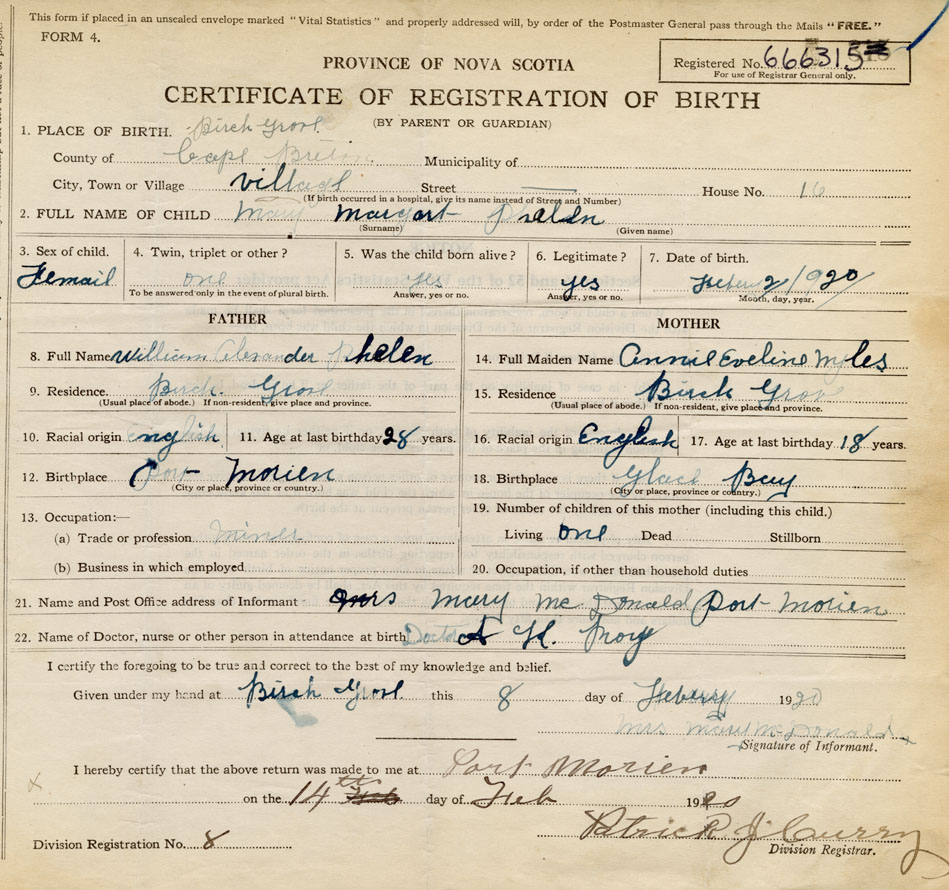 This form if placed in an unsealed envelope marked "Vital Statistics" and properly addressed will, by order of the Postmaster General pass through the Mails "FREE."
FORM 4.
Registered No. 666315
For use of Registrar General only.
PROVINCE OF NOVA SCOTIA
CERTIFICATE OF REGISTRATION OF BIRTH
(BY PARENT OR GUARDIAN)
1. PLACE OF BIRTH. Birch Grove
County of Cape Breton Municipality of
City, Town or Village village Street House No. 16
(If birth occurred in a hospital, give its name instead of Street and Number)
2. FULL NAME OF CHILD Mary Margart Phelen
(Surname) (Given name)
3. Sex of child. 4. Twin, triplet or other? 5. Was the child born alive? 6. Legitimate? 7. Date of birth.
Femail one yes yes 2 1920
To be answered only in the event of plural birth. Answer, yes or no. Answer, yes or no. Month, day, year.
FATHER MOTHER
8. Full Name William Alexander Phelen 14. Full Maiden Name Annie Eveline Myles
9. Residence. Birch Grove 15. Residence Birch Grove
(Usual place of abode.) If non-resident, give place and province. (Usual place of abode.) If non-resident, give place and province.
10. Racial origin English 11. Age at last birthday 28 years. 16. Racial origin English 17. Age at last birthday 18 years.
12. Birthplace Port Morien 18. Birthplace Glace Bay
(City or place, province or country.) (City or place, province or country.)
13. Occupation:— 19. Number of children of this mother (including this child.)
(a) Trade or profession. Miner Living one Dead Stillborn
(b) Business in which employed 20. Occupation, if other than household duties
21. Name and Post Office address of Informant Mrs Mary McDonald Port Morien
22. Name of Doctor, nurse or other person in attendance at birth Doctor A H
I certify the foregoing to be true and correct to the best of my knowledge and belief.
Given under my hand at Birch Grove this 8 day of 1920
Mrs Mary McDonald
Signature of Informant.
I hereby certify that the above return was made to me at Port Morien
on the 14th day of Feb 1920
Patrick J. Curry
Division Registration No. 8 Division Registrar.